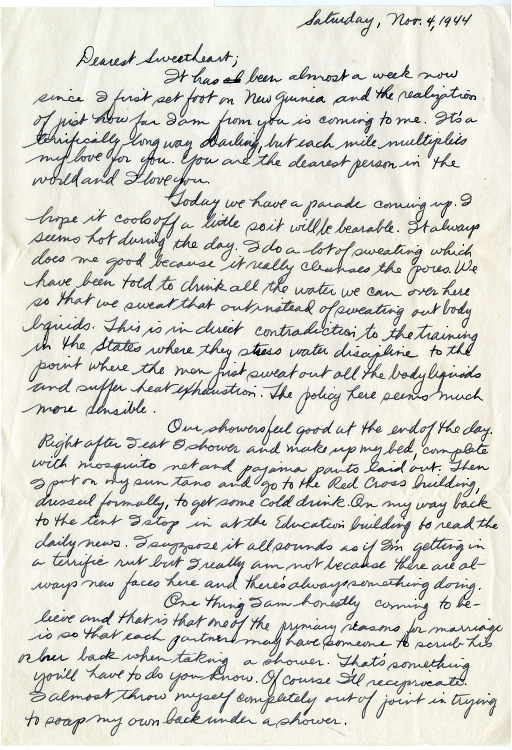 Saturday, Nov. 4, 1944
Dearest Sweetheart;
It has been almost a week now
since I first set foot on New Guinea and the realization
of just how far I am from you is coming to me. It's a
terrifically long way darling, but each mile multiplies
my love for you. You are the dearest person in the
world and I love you.
Today we have a parade coming up. I
hope it cools off a little so it will be bearable. It always
seems hot during the day. I do a lot of sweating which
does me good because it really cleanses the pores. We
have been told to drink all the water we can over here
so that we sweat that out instead of sweating out body
liquids. This is in direct contradiction to the training
in the States where they stress water discipline to the
point where the men just sweat out all the body liquids
and suffer heat exhaustion. The policy here seems much
more sensible.
Our showers feel good at the end of the day.
Right after I eat I shower and make up my bed, complete
with mosquito net and pajama pants laid out. Then
I put on my sun tans and go to the Red Cross building,
dressed formally, to get some cold drink. On my way back
to the tent I stop in at the Education building to read the
daily news. I suppose it all sounds as if I'm getting in
a terrific rut but I really am not because there are al-
ways new faces here and there's always something doing.
One thing I am honestly coming to be-
lieve and that is that one of the primary reasons for marriage
is so that each partner may have someone to scrub his
or her back when taking a shower. That's something
you'll have to do you know. Of course I'll reciprocate.
I almost throw myself completely out of joint in trying
to soap my own back under a shower.